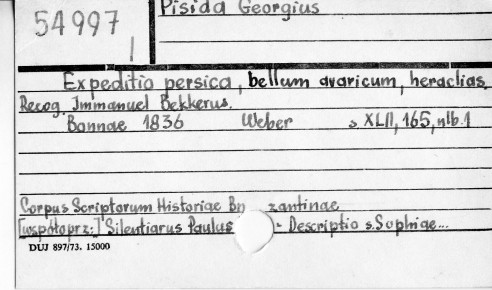 54997
Pisida Georgius
Expeditio persica, bellum avaricum, heraclias.
Recog. Immanuel Bekkerus.
Bonnae 1836 Weber s. XLII, 165, nlb. 1
Corpus Scriptorum Historiae By zantinae
[współoprz:] Silentiarus Paulus - Descriptio s. Sophiae...
DUJ 897/73. 15000